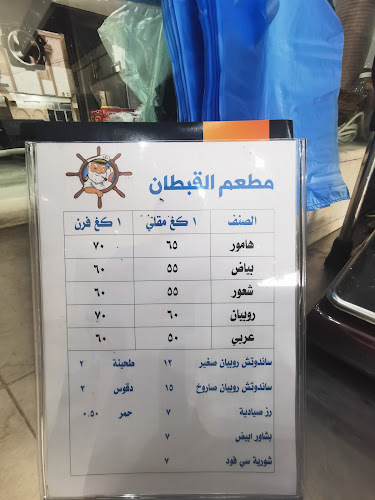 مطعم القبطان
الصنف ١ كغ مقلي ١ كغ فرن
هامور ٦٥ ٧٠
بياض ٥٥ ٦٠
شعور ٥٥ ٦٠
روبيان ٦٠ ٧٠
عربي ٥٠ ٦٠
ساندوتش روبيان صغير ١٢ طحينة ٢
ساندوتش روبيان صاروخ ١٥ دقوس ٣
رز صيادية ٧ حمر ٠.٥٠
بشاور ابيض ٧
شوربة سي فود ٧